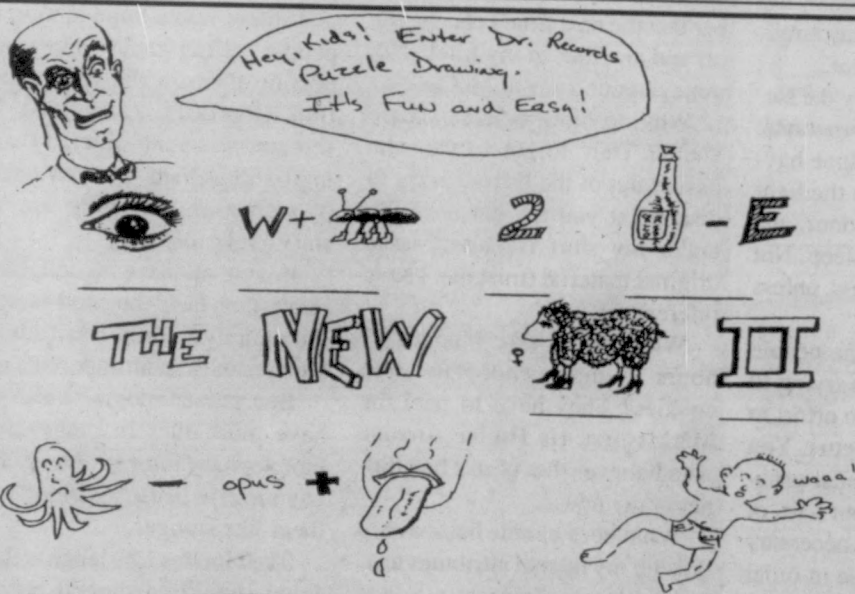 Hey, Kids! Enter Dr. Records
Puzzle Drawing.
It's Fun and Easy!
W+ 2 - E
THE NEW II
- opus + waaa!